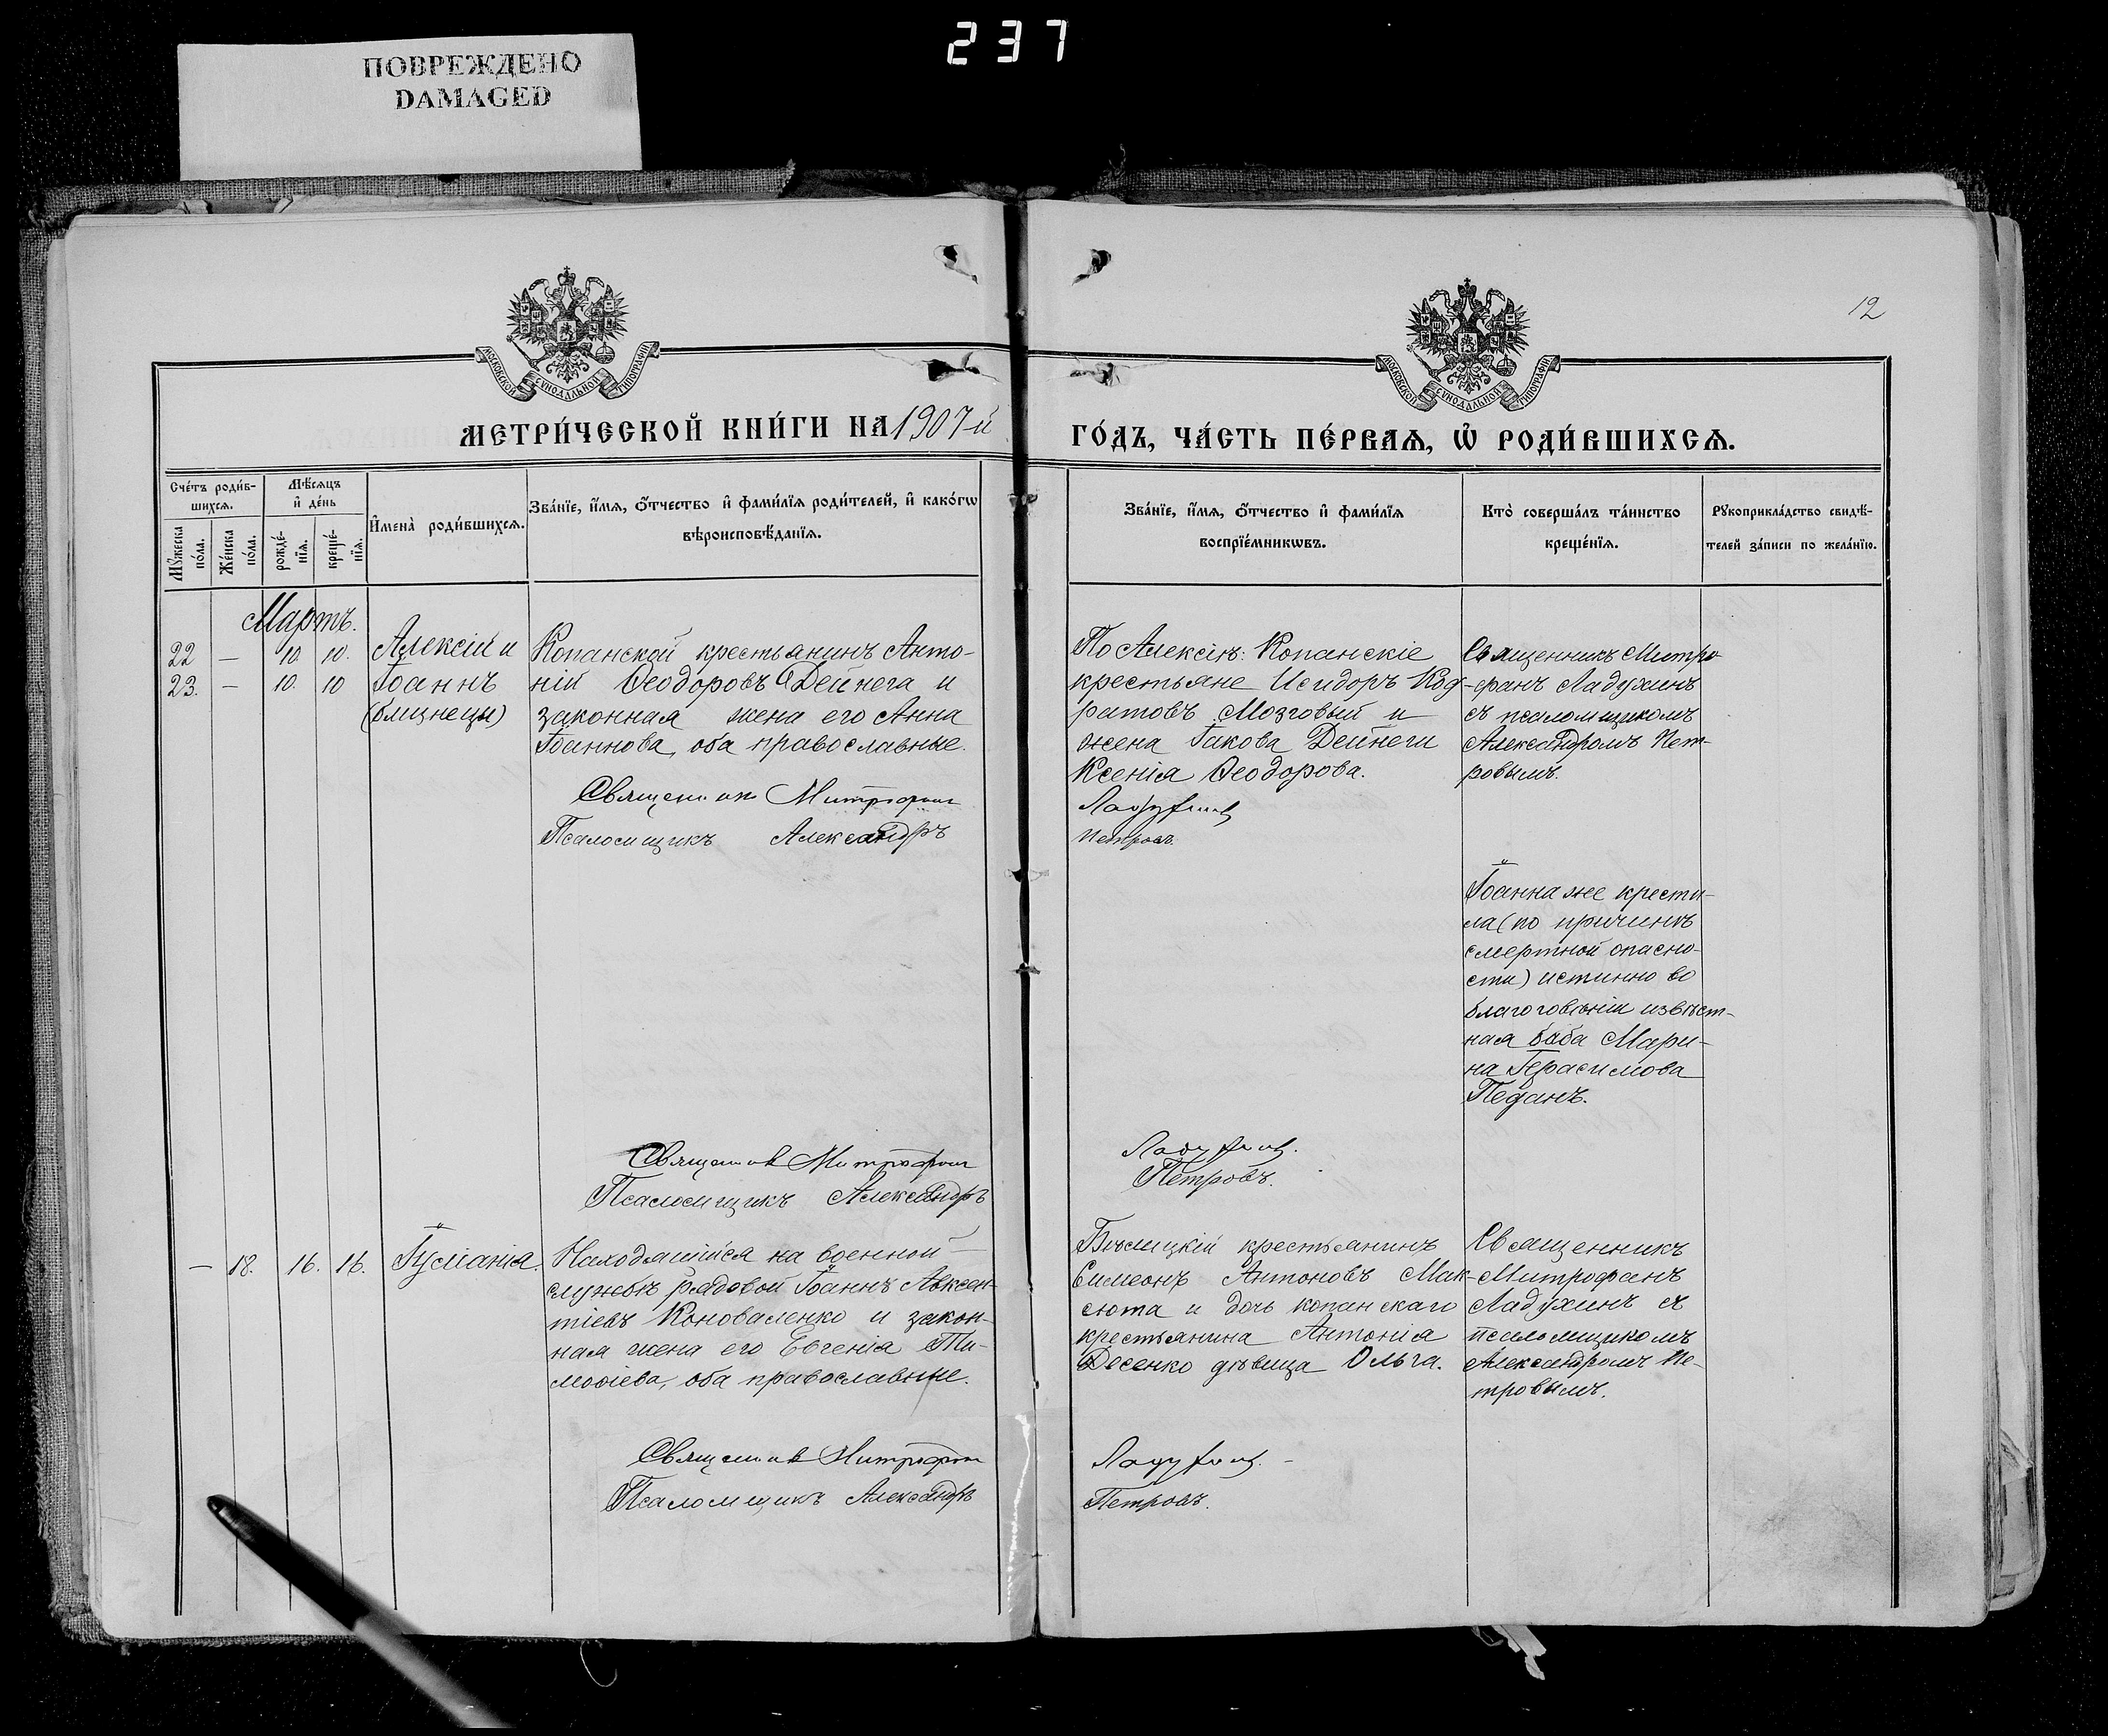 237
ПОВРЕЖДЕНО
DAMAGED
12
МОСКОВСКОЙ СѴНОДАЛЬНОЙ ТИПОГРАФІИ
МОСКОВСКОЙ СѴНОДАЛЬНОЙ ТИПОГРАФІИ
МЕТРИ́ЧЕСКОЙ КНИ́ГИ НА 1907-й
ГО́ДЪ, ЧА́СТЬ ПЕ́РВАѦ, Ѡ҆ РОДИ́ВШИХСѦ.
Сче́тъ роди́в-
шихсѧ.
Мꙋ́жеска
по́ла.
Же́нска
по́ла.
Мѣ́сѧцъ
и҆ де́нь
рожде́-
нїѧ.
креще́-
нїѧ.
И҆мена̀ роди́вшихсѧ.
Зва́нїе, и҆́мѧ, ѻ҆́тчество и҆ фами́лїѧ роди́телей, и҆ како́гѡ
вѣроисповѣ́данїѧ.
Зва́нїе, и҆́мѧ, ѻ҆́тчество и҆ фами́лїѧ
воспрїе́мникѡвъ.
Кто̀ соверша́лъ та́инство
креще́нїѧ.
Рꙋкоприкла́дство свидѣ́-
телей за́писи по жела́нїю.
Мартъ.
22 — 10. 10.
23. — 10. 10
Алексій и
Іоаннъ
(близнецы)
Копанской крестьянинъ Анто-
ній Ѳеодоровъ Дейнега и
законная жена его Анна
Іоаннова, оба православные.
Священник Митрофан
Псаломщикъ Александръ
По Алексіѣ: Копанскіе
крестьяне Исидоръ Код-
ратовъ Мозговый и
жена Іакова Дейнеги
Ксенія Ѳеодорова.
Ладухинъ
Петровъ.
Священникъ Митро-
фанъ Ладухинъ
съ псаломщикомъ
Александромъ Пет-
ровымъ.
Іоанна же крести-
ла (по причинѣ
смертной опасно-
сти) истинно во
благоговѣніи извѣст-
ная баба Мари-
на Герасимова
Педанъ.
Священник Митрофан
Псаломщикъ Александръ
Ладухинъ.
Петровъ.
— 18. 16. 16.
Іуліанія.
Находящійся на военной
службѣ рядовой Іоаннъ Авксен-
тіевъ Коноваленко и закон-
ная жена его Евгенія Ти-
моѳіева, оба православные.
Священник Митрофан
Псаломщикъ Александръ
Бѣлицкій крестьянинъ
Симеонъ Антоновъ Мак-
сюта и дочь копанскаго
крестьянина Антонія
Десенко дѣвица Ольга.
Ладухинъ.
Петровъ.
Священникъ
Митрофанъ
Ладухинъ съ
псаломщикомъ
Александромъ Пе-
тровымъ.